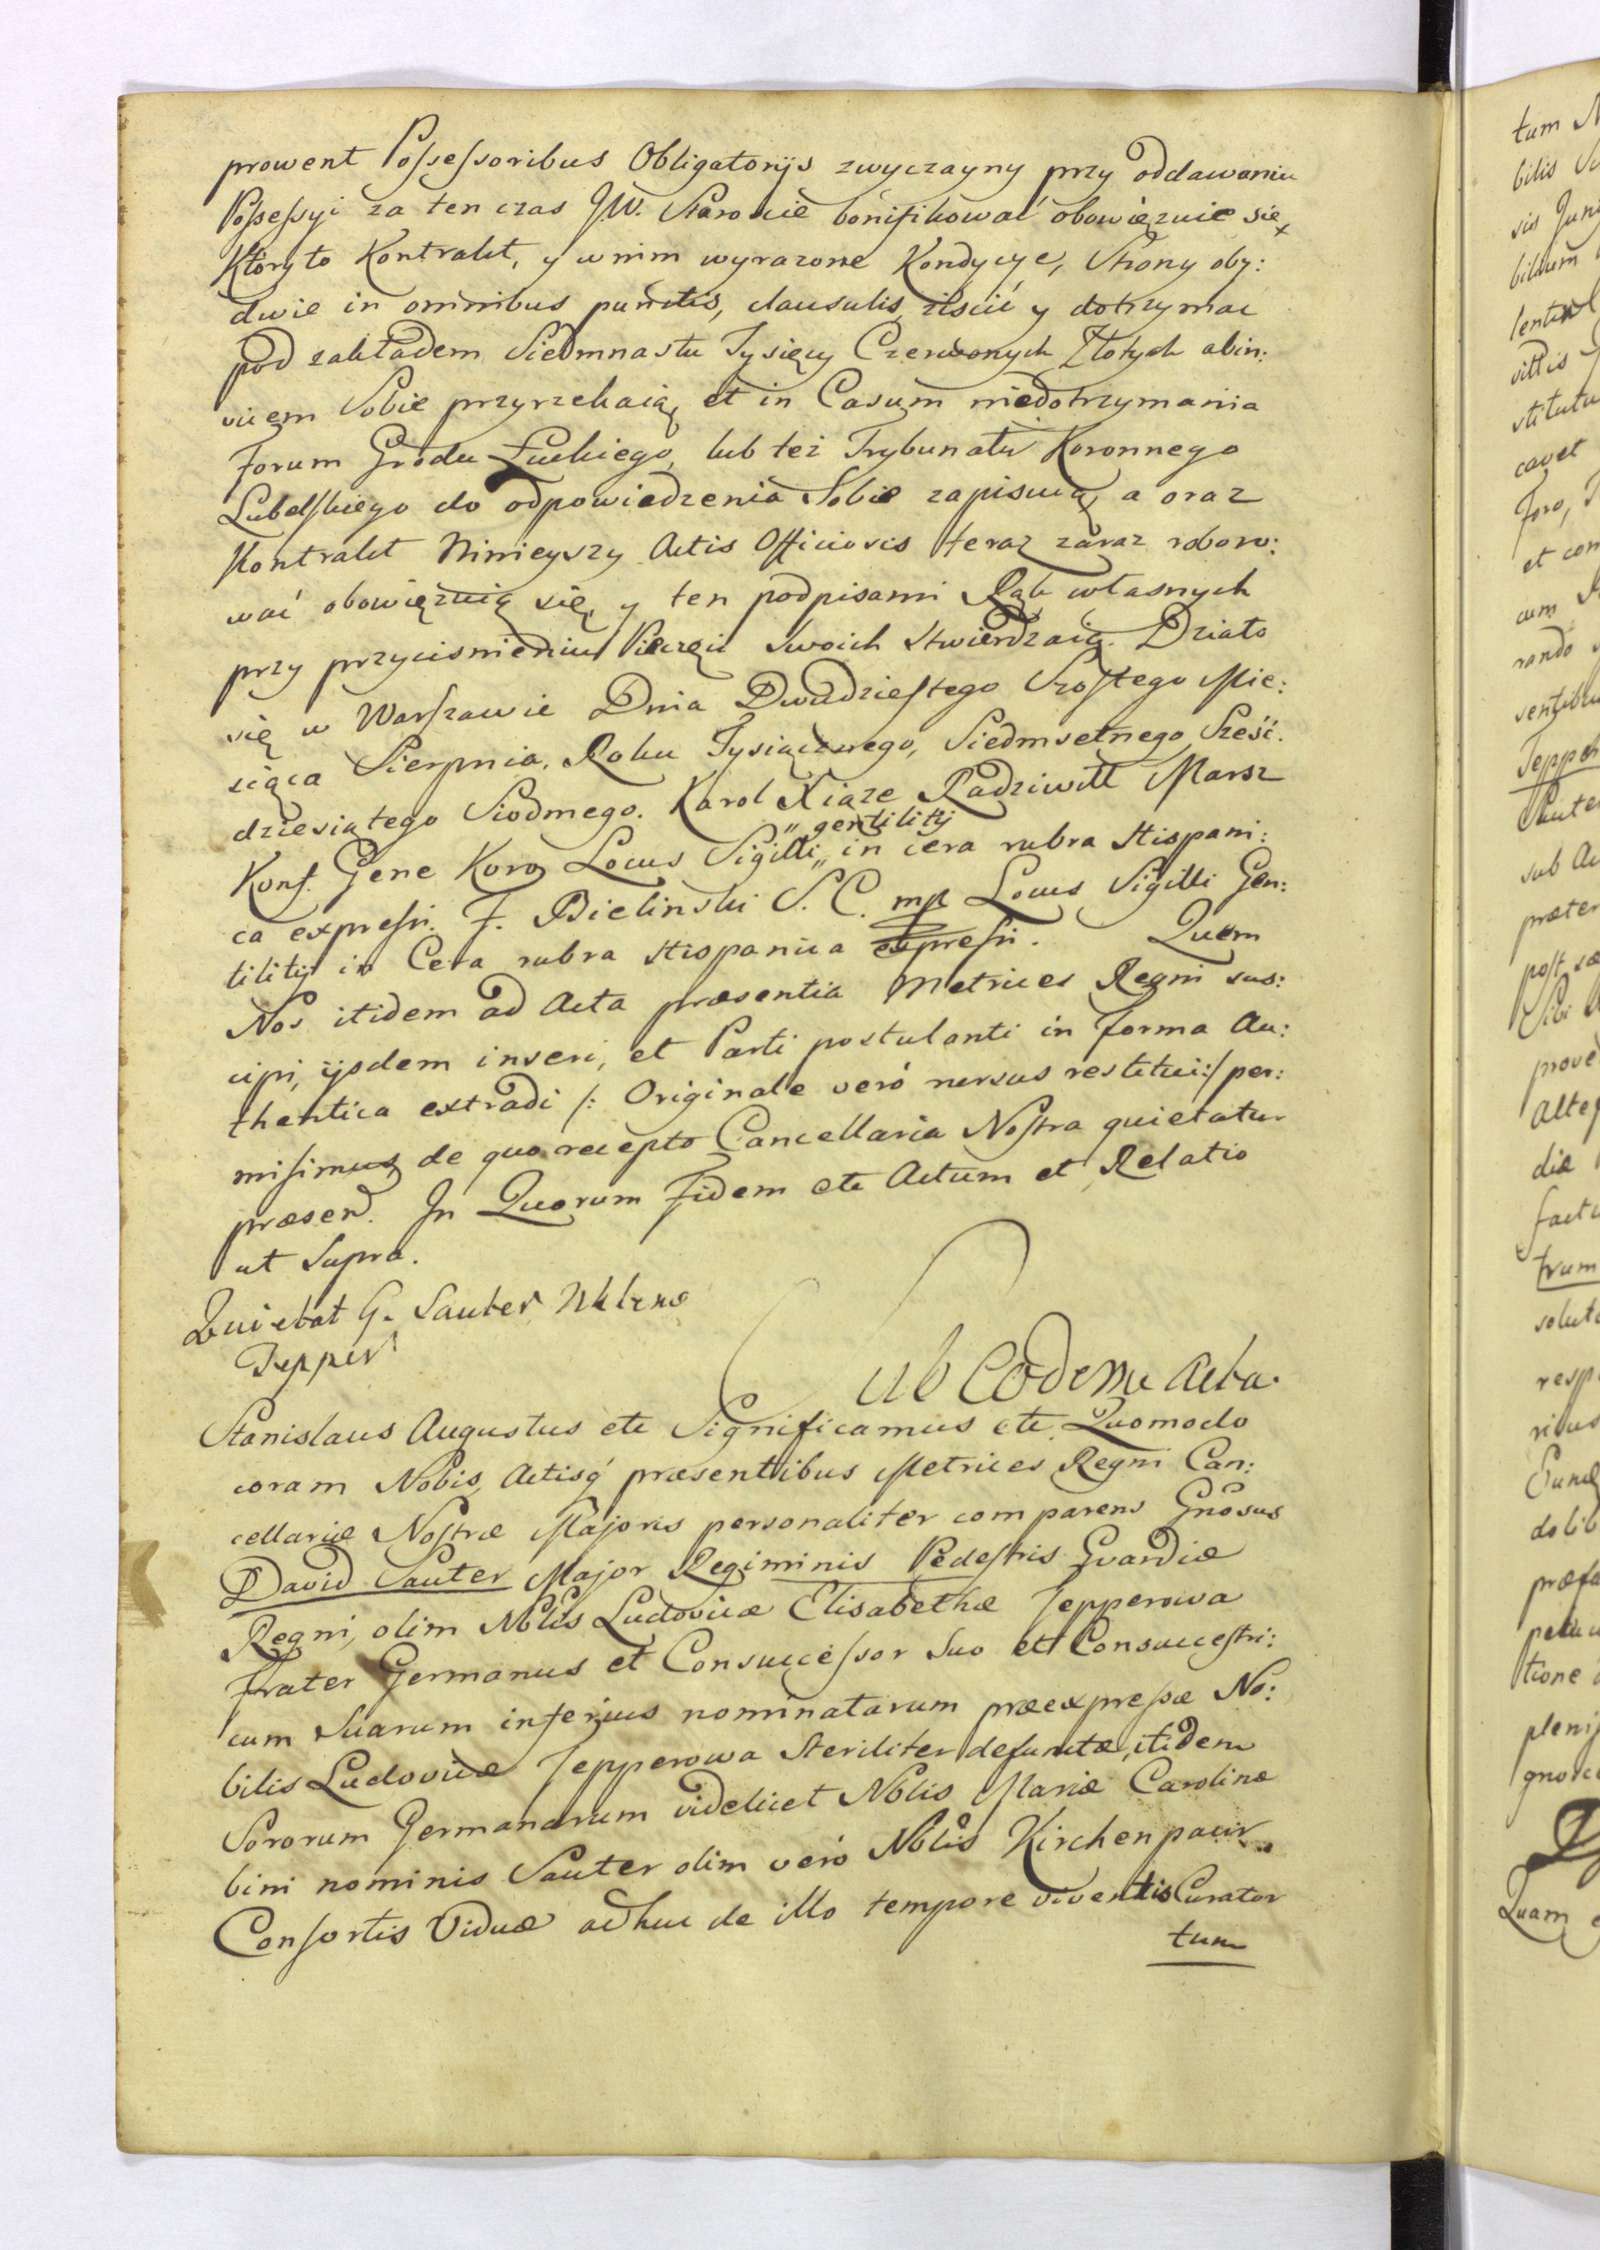 prowent Possessoribus Obligatorijs zwyczayny przy oddawaniu
Possessyi za ten czas JW. Staroscie bonifikować obowięznie się
Ktory to Kontrakt, y w nim wyrazone Kondycye, Strony oby:
dwie in omnibus punctis, clausulis, iścić y dotrzymac
pod zakładem Siedmnastu Tysięcy Czerwonych Złotych abin:
vicem Sobie przyrzekaią, et in Casum niedotrzymania
Forum Grodu Łuckiego, lub też Trybunału Koronnego
Lubelskiego do odpowiedzenia Sobie zapisuią, a oraz
Kontrakt Ninieyszy Actis Officiosis teraz zaraz roboro:
wać obowięznią się, y ten podpisami Rąk własnych
przy przycisnieniu Pieczęci swoich stwierdzaią. Działo
się w Warszawie Dnia Dwudziestego Szostego Mie:
siąca Sierpnia, Roku Tysiącznego, Siedmsetnego Sześć:
dziesiątego Siodmego. Karol Xiąze Radziwiłł Marsz
Konf. Gene Koro Locus Sigilli „gentilitij„ in cera rubra Hispani:
ca expressi. F. Bielinski S. C. mp Locus Sigilli Gen:
tilitij in Cera rubra Hispanica expressi. Quem
Nos itidem ad Acta præsentia Metrices Regni sus:
cipi, ijsdem inseri, et Parti postulanti in forma Au:
thentica extradi /: Originale veró rursus restitui:/ per:
misimus, de quo recepto Cancellaria Nostra quietatur
præsen. In Quorum Fidem etc Actum et Relatio
ut Supra.
Quietat G. Sauter Nklrus
Tepper
Sub Eodem Acta.
Stanislaus Augustus etc Significamus etc Quomodo
coram Nobis, Actisq́ præsentibus Metrices Regni Can:
cellariæ Nostræ Majoris personaliter comparens Gnosus
David Sauter Major Regiminis Pedestris Gvardiæ
Regni, olim Nblis Ludovicæ Elisabethæ Tepperowa
Frater Germanus et Consuccessor Suo et Consuccestri:
cum Suarum inferius nominatarum præexpressæ No:
bilis Ludovicæ Tepperowa Steriliter defunctæ, itidem
Sororum Germanarum videlicet Nblis Mariæ Carolinæ
bini nominis Sauter olim veró Nblis Kirchenpaur
Consortis Viduæ adhuc de illo tempore viventis Curator
tum